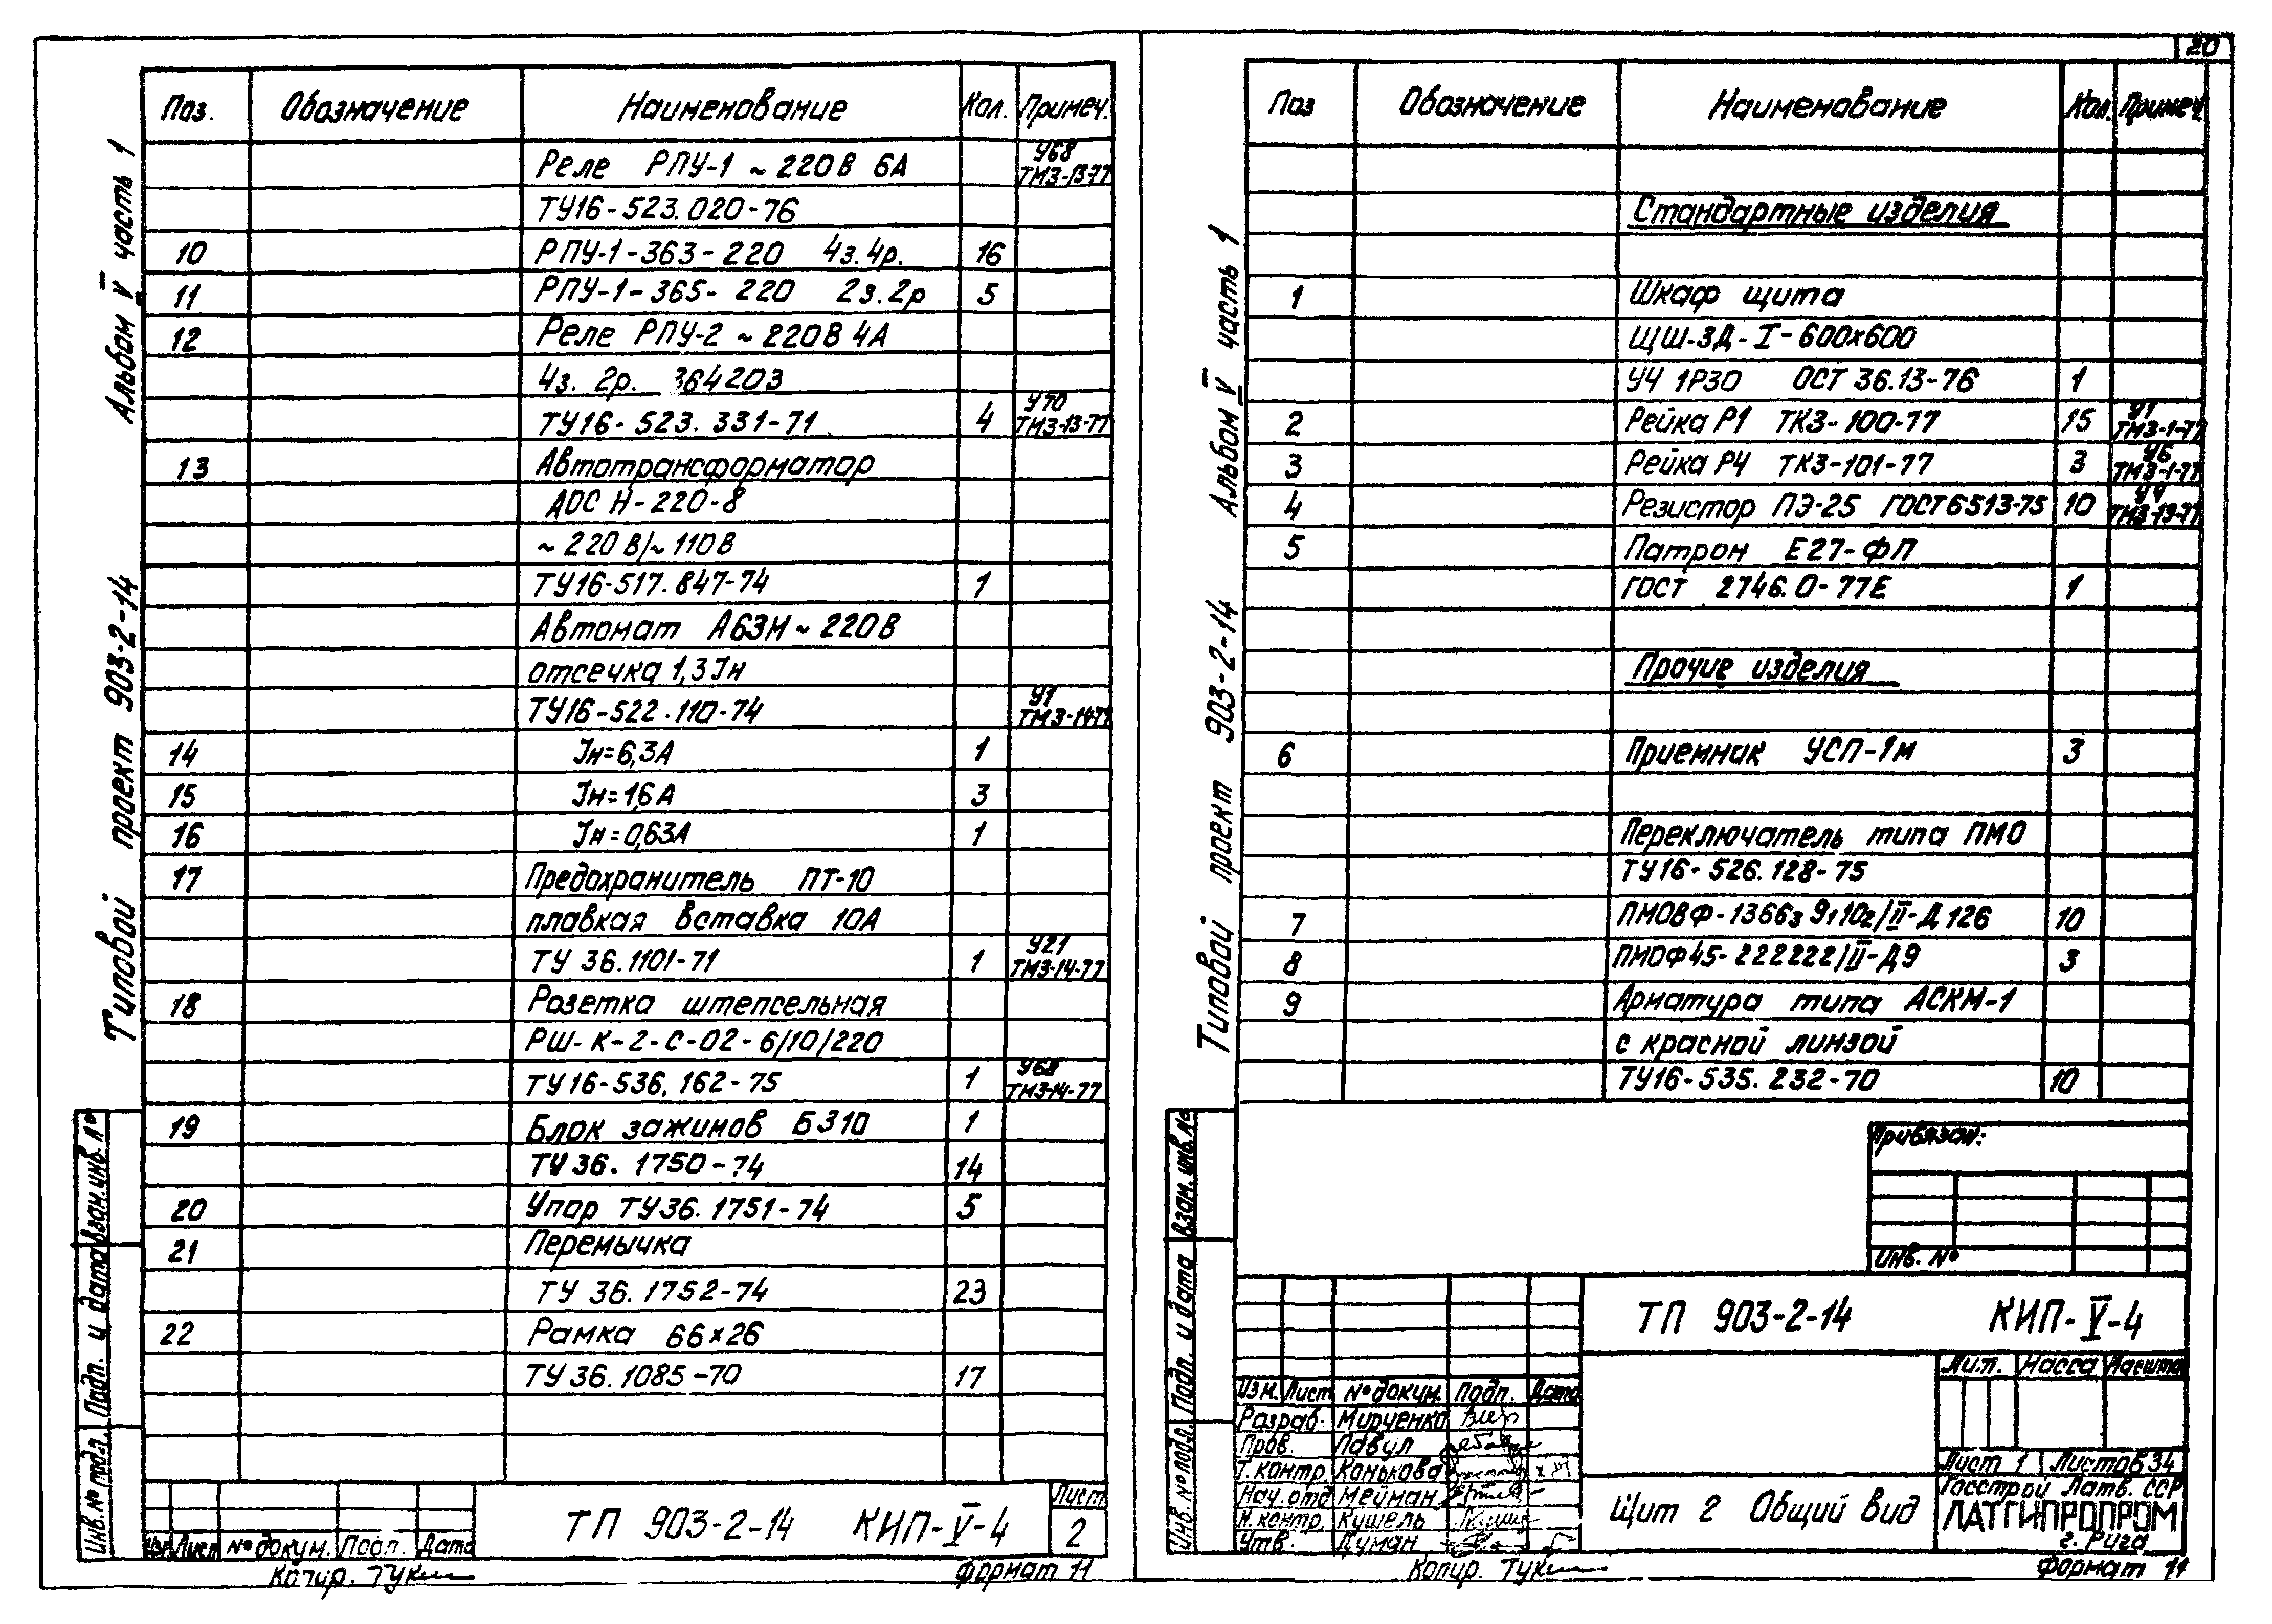 20
Типовой проект 903-2-14 Альбом V часть 1
Поз. Обозначение Наименование Кол. Примеч.
Реле РПУ-1 ~ 220В 6А У68 ТМ3-13-77
ТУ16-523.020-76
10 РПУ-1-363-220 4з.4р. 16
11 РПУ-1-365-220 2з.2р 5
12 Реле РПУ-2 ~ 220В 4А
4з. 2р. 364203
ТУ16-523.331-71 4 У70 ТМ3-13-77
13 Автотрансформатор
АОСН-220-8
~220В/~110В
ТУ16-517.847-74 1
Автомат А63М ~ 220В
отсечка 1,3Iн
ТУ16-522.110-74 У1 ТМ3-14-77
14 Iн=6,3А 1
15 Iн=1,6А 3
16 Iн=0,63А 1
17 Предохранитель ПТ-10
плавкая вставка 10А
ТУ 36.1101-71 1 У21 ТМ3-14-77
18 Розетка штепсельная
РШ-К-2-С-02-6/10/220
ТУ16-536,162-75 1 У68 ТМ3-14-77
19 Блок зажимов БЗ10 1
ТУ36.1750-74 14
20 Упор ТУ36.1751-74 5
21 Перемычка
ТУ 36.1752-74 23
22 Рамка 66х26
ТУ 36.1085-70 17
Инв.№ подл. Подп. и дата Взам.инв.№
Изм Лист № докум. Подп. Дата
ТП 903-2-14 КИП-V-4
Лист
2
Копир.
Формат 11
Типовой проект 903-2-14 Альбом V часть 1
Поз Обозначение Наименование Кол. Примеч
Стандартные изделия
1 Шкаф щита
ЩШ-ЗД-I-600х600
У4 1Р30 ОСТ 36.13-76 1
2 Рейка Р1 ТК3-100-77 15 У1 ТМ3-1-77
3 Рейка Р4 ТК3-101-77 3 У6 ТМ3-1-77
4 Резистор ПЭ-25 ГОСТ6513-75 10 У4 ТМ3-19-77
5 Патрон Е27-ФП
ГОСТ 2746.0-77Е 1
Прочие изделия
6 Приемник УСП-1м 3
Переключатель типа ПМО
ТУ16-526.128-75
7 ПМОВФ-1366з 9110г/II-Д126 10
8 ПМОФ45-222222/II-Д9 3
9 Арматура типа АСКМ-1
с красной линзой
ТУ16-535.232-70 10
Привязан:
Инв. №
Инв. № подл. Подп. и дата Взам.инв.№
ТП 903-2-14 КИП-V-4
Лит. Масса Масштаб
Изм. Лист № докум. Подп. Дата
Разраб.
Пров. Павул
Т. контр. Конькова
Нач. отд Мейман
Н. контр. Кушель
Утв. Думан
Лист 1 Листов 34
Щит 2 Общий вид
Госстрой Латв. ССР
ЛАТГИПРОПРОМ
г. Рига
Копир.
Формат 11